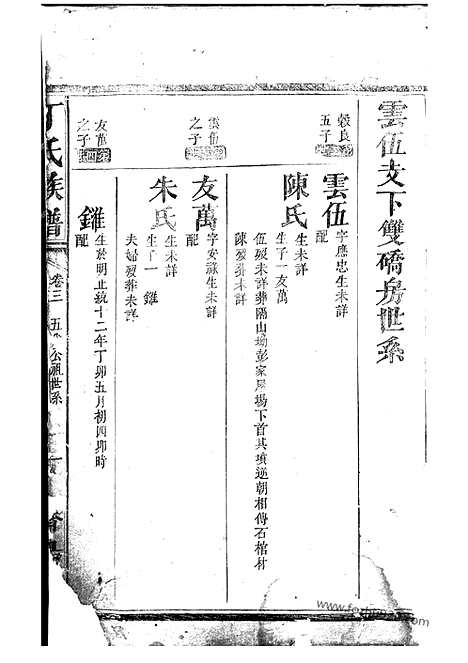 雲伍支下雙礄房世系
穀良
五子
雲伍字應忠生未詳
配
陳氏生未詳
生子一友萬
伍歿未詳葬隔山坳彭家屋塲下首其墳逆朝相傳石棺材
陳歿葬未詳
雲伍
之子
友萬字安祿生未詳
配
朱氏生未詳
生子一 錐
夫婦歿葬未詳
友萬
之子
錐生於明正統十二年丁卯五月初四卯時
配
丁氏族譜
卷三
五
公祖世系